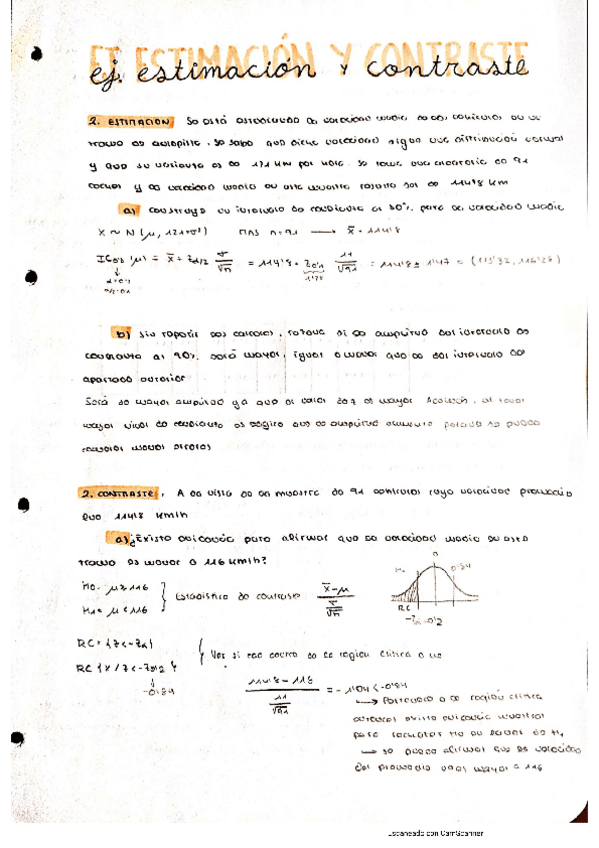 EJ ESTIMACIÓN Y CONTRASTE
ej. estimación y contraste
2. ESTIMACION. Se está estudiando la velocidad media de los vehículos en un
tramo de autopista. Se sabe que dicha velocidad sigue una distribución normal
y que su varianza es de 121 km por hora. Se toma una muestra de 91
coches y la velocidad media en esta muestra resulta ser de 114'8 km
a) construye un intervalo de confianza al 80%. para la velocidad media
X ~ N (μ, 121=σ²) MAS n=91 → x̄ = 114'8
IC0'8 (μ) = x̄ ± Zα/2 σ/√n = 114'8 ± Z0'1 11/√91 = 114'8 ± 1'47 = (113'32, 116'28)
1'28
b) Sin repetir los cálculos, razone si la amplitud del intervalo de
confianza al 90%. será mayor, igual o menor que la del intervalo del
apartado anterior
Será de mayor amplitud ya que el valor de z es mayor. Además, al tener
mayor nivel de confianza es lógico que la amplitud aumente porque se puede
cometer menos errores
2. CONTRASTE. A la vista de la muestra de 91 vehículos cuya velocidad promedio
fue 114'8 km/h
a) ¿Existe evidencia para afirmar que la velocidad media en este
tramo es menor a 116 km/h?
H0: μ ≥ 116
H1: μ < 116
Estadístico de contraste x̄-μ / σ/√n
H0 0 0'84
RC
-Zα -0'2
RC = {z < -Zα}
RC {x / z < -Z0'2}
-0'84
Ver si cae dentro de la región crítica o no
114'8 - 116 / 11/√91 = -1'04 < -0'84
→ Pertenece a la región crítica
entonces existe evidencia muestral
para rechazar H0 en favor de H1
→ se puede afirmar que la velocidad
del promedio es mayor a 116
Escaneado con CamScanner